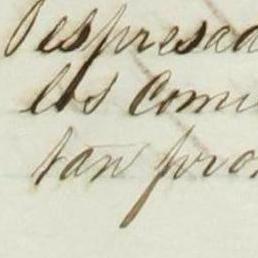 espresad
los comi
tan pron